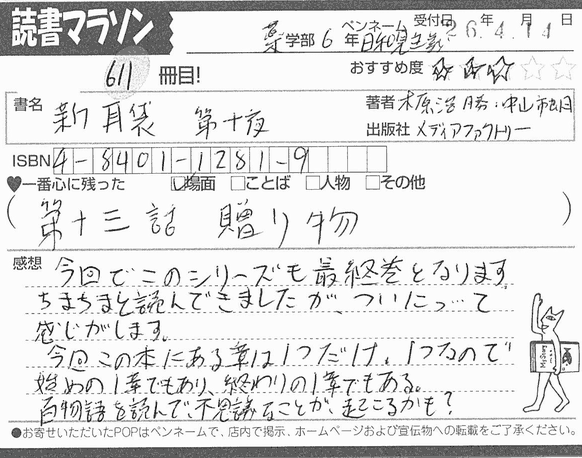 読書マラソン
薬学部 6年 ペンネーム 日和見主義 受付日 26年4月14日
611冊目!
おすすめ度 ★★★☆☆
書名 新耳袋 第十夜
著者 木原浩勝・中山市朗
出版社 メディアファクトリー
ISBN 4-8401-1281-9
♥一番心に残った ☑場面 □ことば □人物 □その他
(第十三話 贈り物)
感想 今回でこのシリーズも最終巻となります。
ちまちまと読んできましたが、ついにっ…て
感じがします。
今回この本にある章は1つだけ。1つなので
始めの1章でもあり、終わりの1章でもある。
百物語を読んで、不思議なことが起こるかも?
●お寄せいただいたPOPはペンネームで、店内で掲示、ホームページおよび宣伝物への転載をご了承ください。